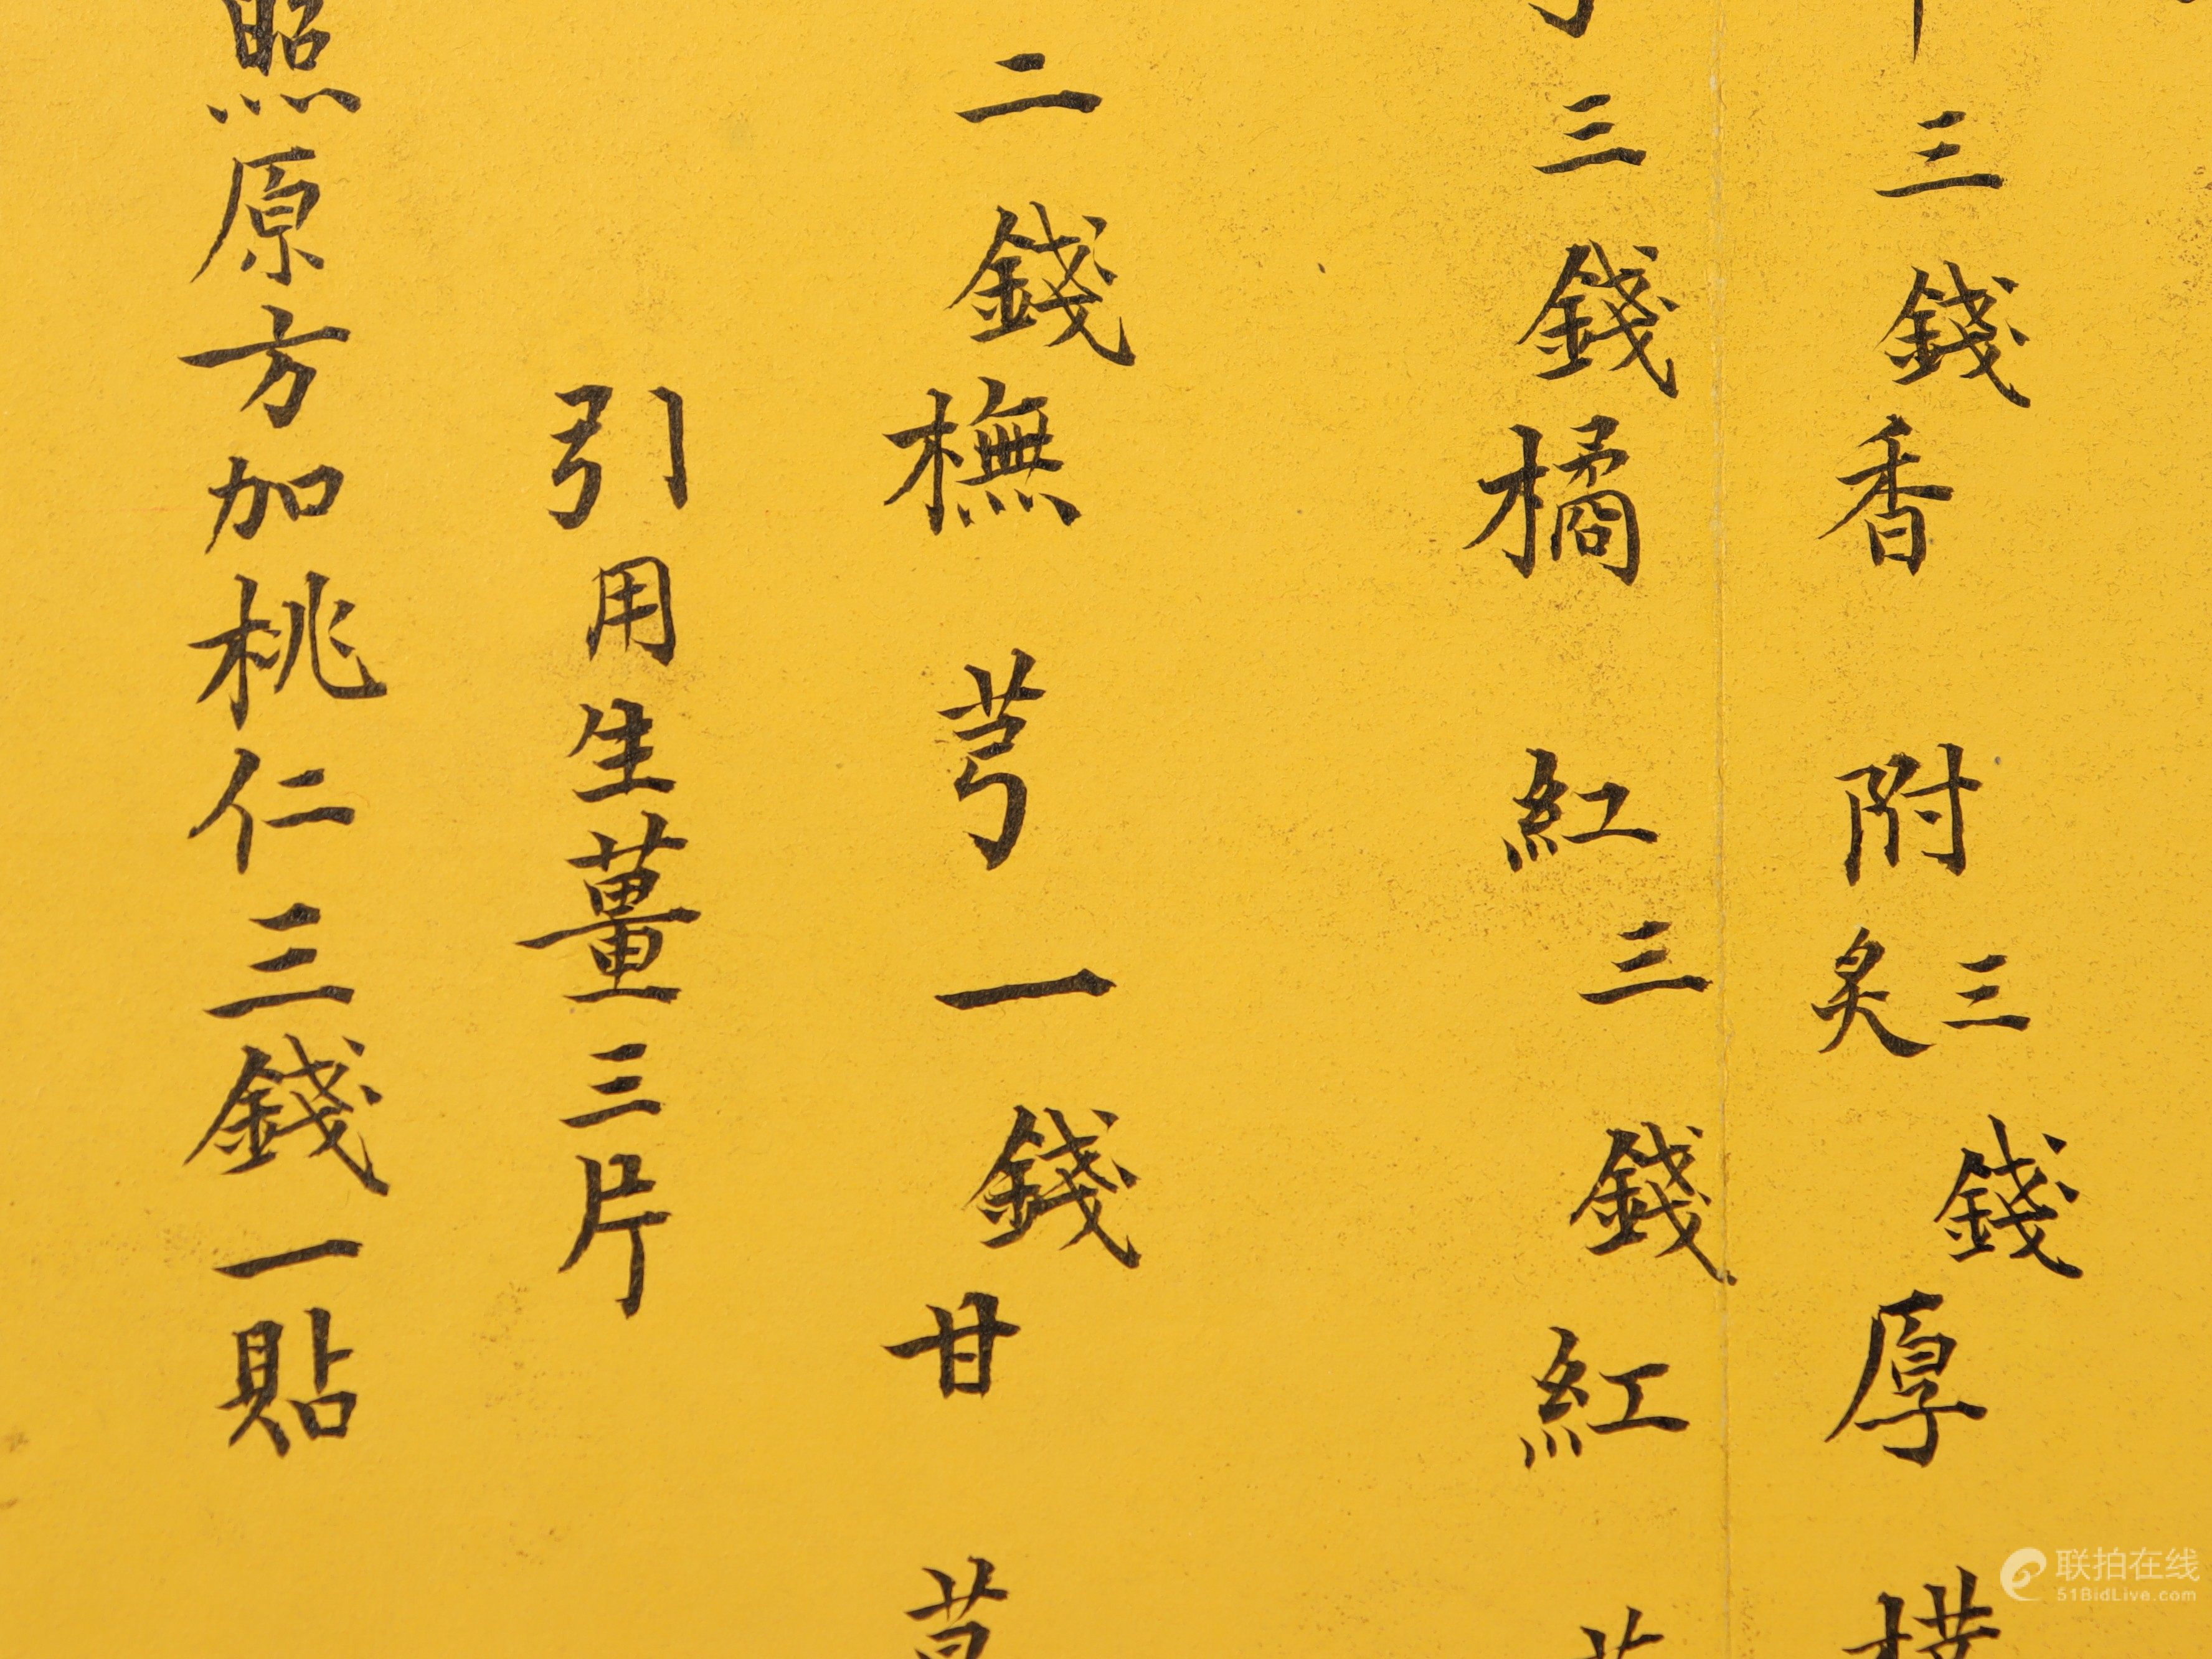 三錢香附三錢炙厚
三錢橘紅三錢紅
二錢橅芎一錢甘
引用生薑三片
照原方加桃仁三錢一貼
联拍在线
51BidLive.com